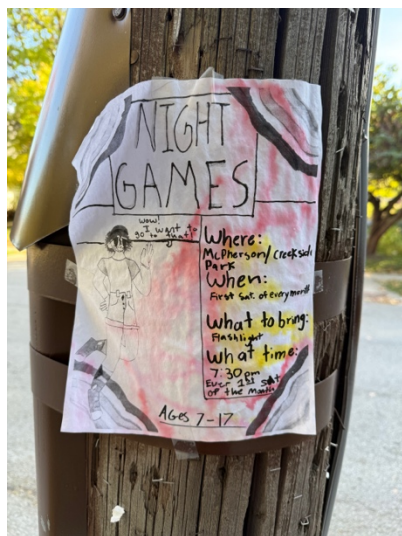 NIGHT
GAMES
wow!
I want to
go to that!
Where:
McPherson/Creekside
Park
When:
First Sat. of every month
What to bring:
Flashlight
What time:
7:30pm
Ever 1st sat
of the Month
Ages 7-17